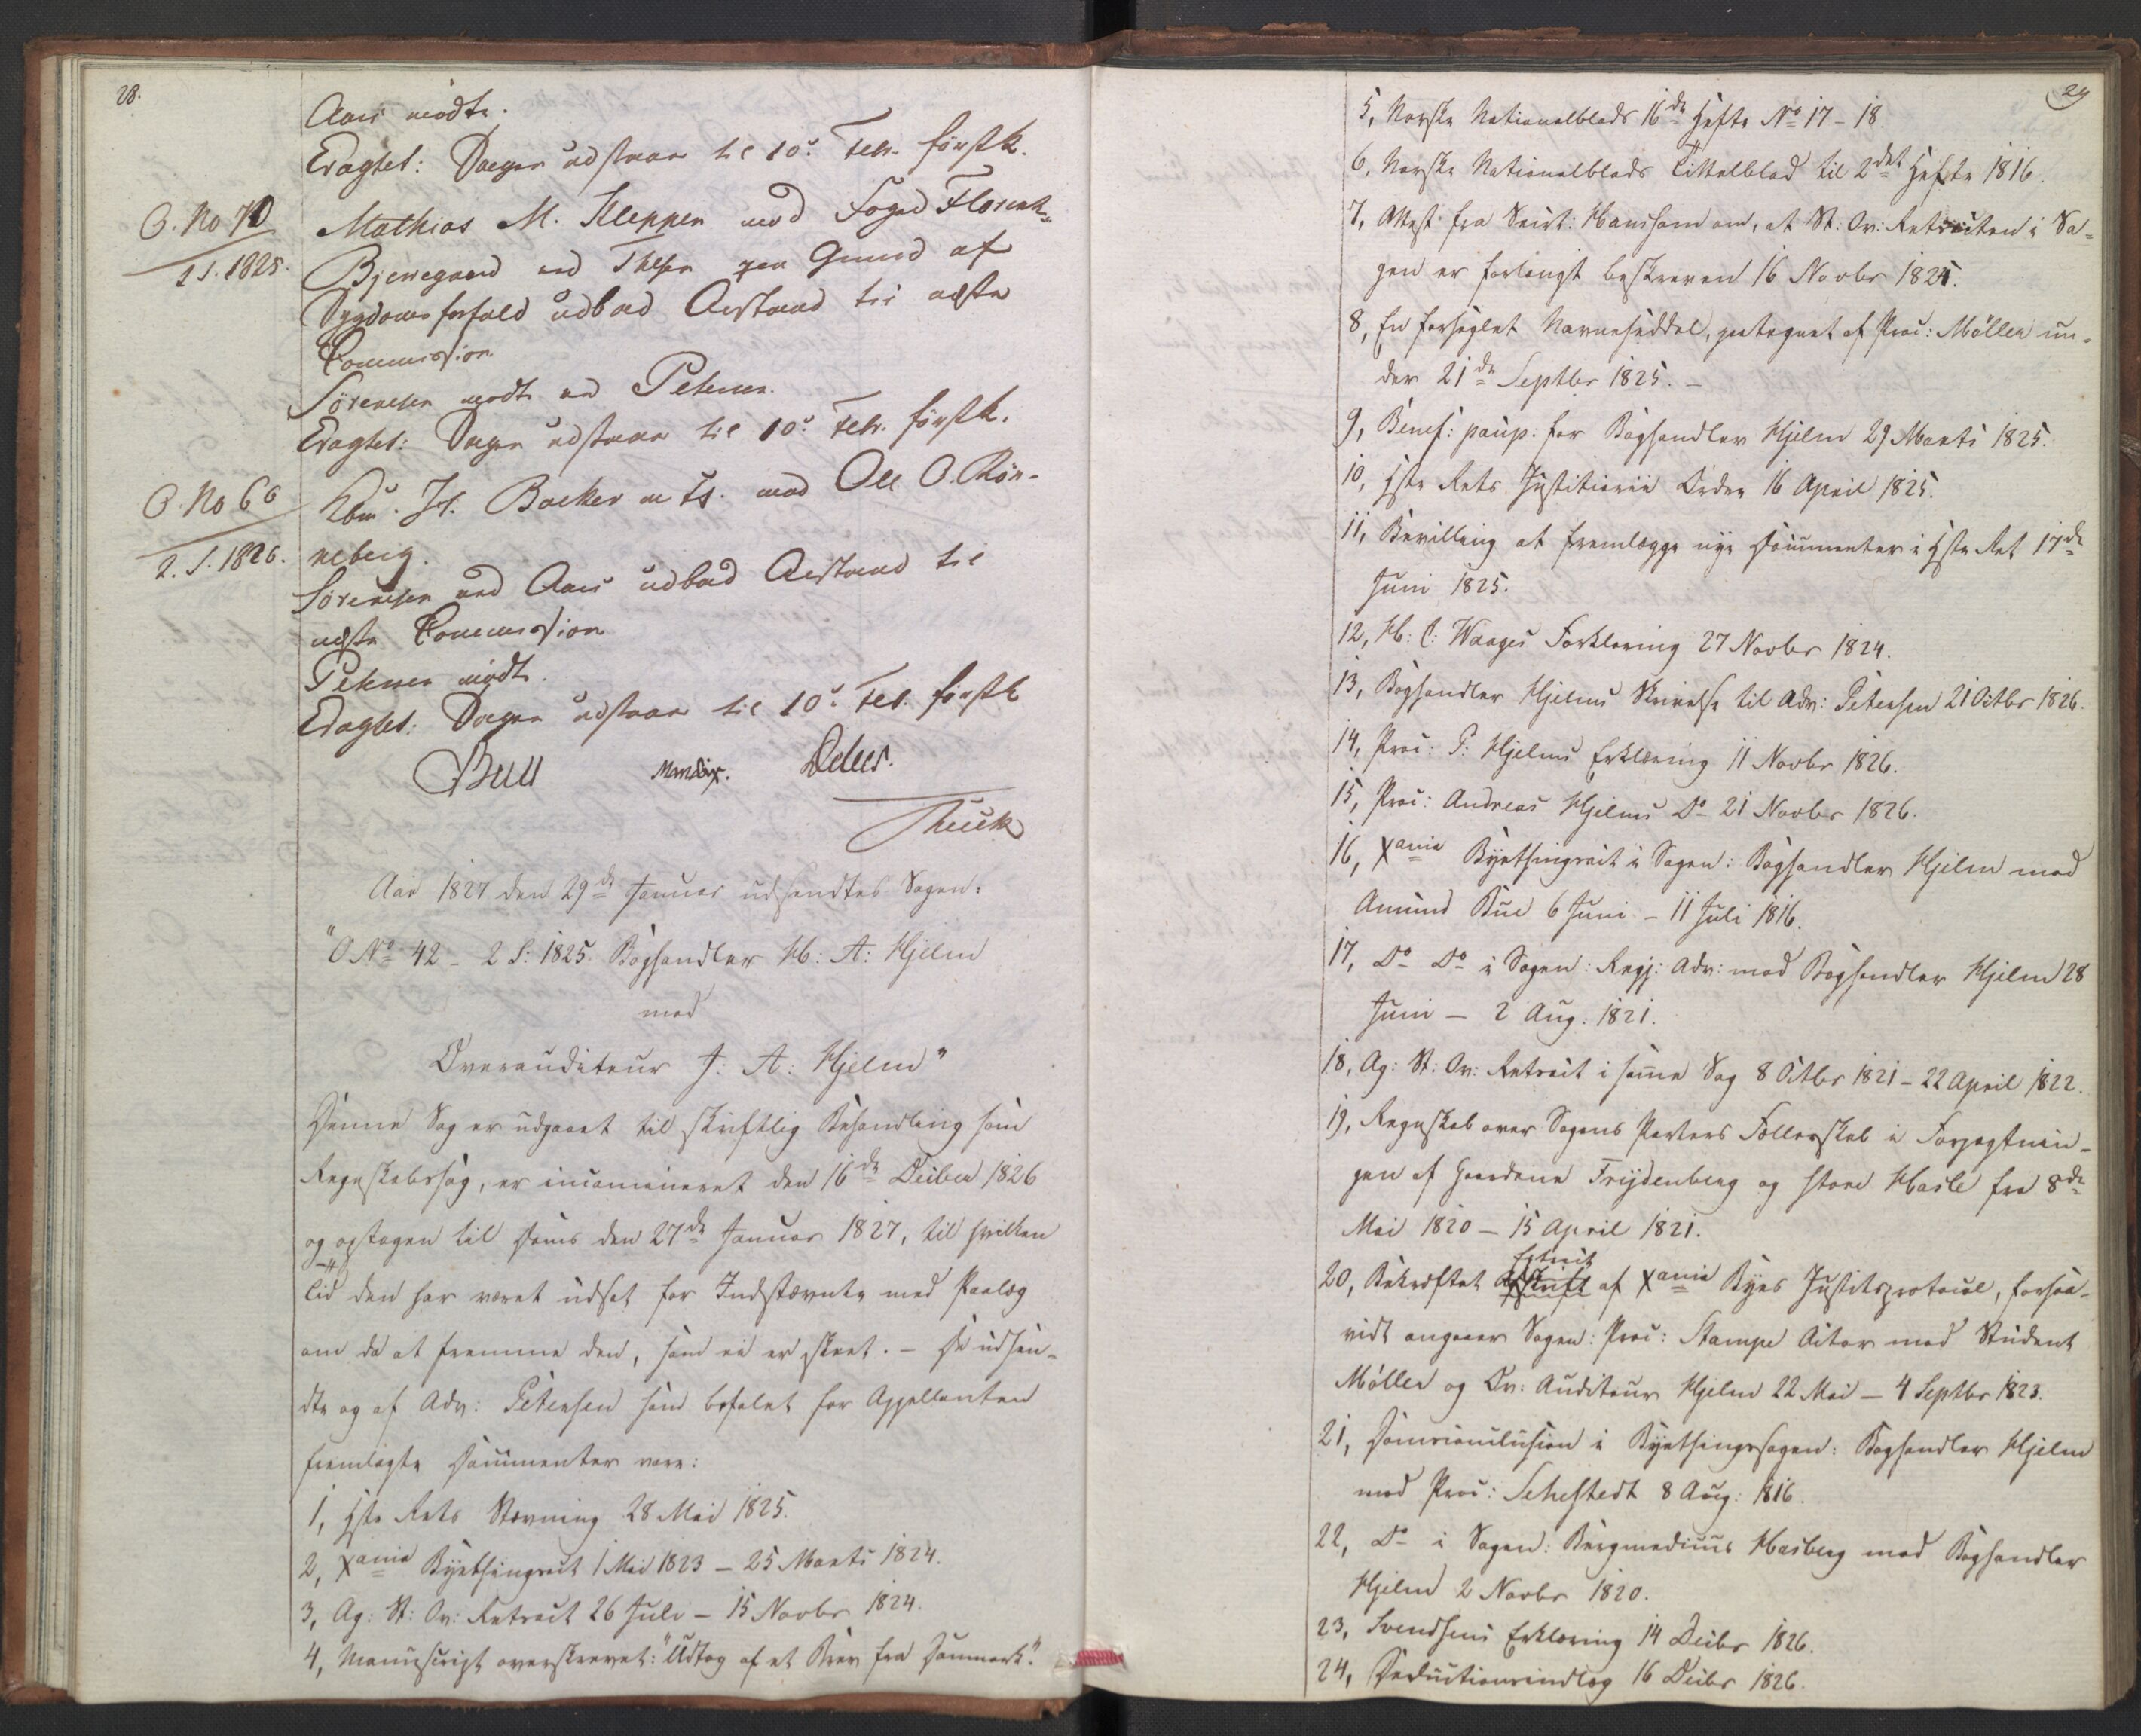 28.
Aars mødte.
Eragtet: Sagen udstaar til 10de Febr. førstk.
O. No 70
2 S. 1825.
Mathias M. Kleppen mod Foged Florentz
Bjerregaard ved Thesen paa Grund af
Sygdoms forfald udbad Anstand til næste
Commission
Sørensen mødte ved Petersen.
Eragtet: Sagen udstaar til 10de Febr. førstk.
O. No 66
2. S. 1826.
H. Backer m fl. mod Ole O. Røn-
neberg.
Sørensen ved Aars udbad Anstand til
næste Commission
Petersen mødte.
Eragtet: Sagen udstaar til 10de Feb. førstk
Bull Mandix. Debes.
Aar 1827 den 29de Januar udsendtes Sagen:
"O. No 42 - 2 S: 1825. Boghandler H: A: Hjelm
mod
Overauditeur J: A: Hjelm"
Denne Sag er udgaaet til skriftlig Behandling som
Regnskabssag, er incamineret den 16de Decber 1826
og optagen til Doms den 27de Januar 1827, til hvilken
Tid den har været udsat for Indstævnte med Paalæg
om da at fremme den, som ei er skeet. - De udsen-
dte og af Adv: Petersen som befalet for Appellanten
fremlagte Documenter vare:
1, Hste Rets Stævning 28 Mai 1825.
2, Xania Byethingsact 1 Mai 1823 - 25 Marts 1824.
3, Ag: St: Ov: Retsact 26 Juli - 15 Novbr 1824.
4, Manuscript overskrevet: "Udtog af et Brev fra Danmark."
29
5, Norske Nationalblads 16de Hefte No 17 - 18.
6, Norske Nationalblads Tittelblad til 2det Hefte 1816.
7, Attest fra Secrt: Hansson om, at St: Ov: Retsacten i Sa-
gen er forlangt beskreven 16 Novbr 1825.
8, En forseglet Navneseddel, paategnet af Proc: Møller un-
der 21de Septbr 1825. -
9, Benef: paup: for Boghandler Hjelm 29 Marts 1825.
10, Hste Rets Justitiarii Ordre 16 April 1825.
11, Bevilling at fremlægge nye Documenter i Hste Ret 17de
Juni 1825.
12, H: C: Waages Forklaring 27 Novbr 1824.
13, Boghandler Hjelms Skrivelse til Adv: Petersen 21 Octbr 1826.
14, Proc: P: Hjelms Erklæring 11 Novbr 1826.
15, Proc: Andreas Hjelms Do 21 Novbr 1826.
16, Xania Byethingsact i Sagen: Boghandler Hjelm mod
Amund Bue 6 Juni - 11 Juli 1816.
17, Do Do i Sagen: Regj: Adv: mod Boghandler Hjelm 28
Juni - 2 Aug: 1821.
18, Ag: St: Ov: Retsact i samme Sag 8 Octbr 1821 - 22 April 1822.
19, Regnskab over Sagens Parters Fællesskab i Forpagtnin-
gen af Gaardene Frydenberg og store Hasle fra 8de
Mai 1820 - 15 April 1821.
20, Bekræftet Afskrift Extract af Xania Byes Justitsprotocol, forsaa-
vidt angaaer Sagen: Proc: Stampe Actor mod Student
Møller og Ov: Auditeur Hjelm 22 Mai - 4 Septbr 1823.
21, Domsconclusion i Byethingssagen: Boghandler Hjelm
mod Proc: Sehestedt 8 Aug: 1816.
22, Do i Sagen: Bergmedicus Hasberg mod Boghandler
Hjelm 2 Novbr 1820.
23, Svendsens Erklæring 14 Decbr 1826.
24, Deductionsindlæg 16 Decbr 1826.